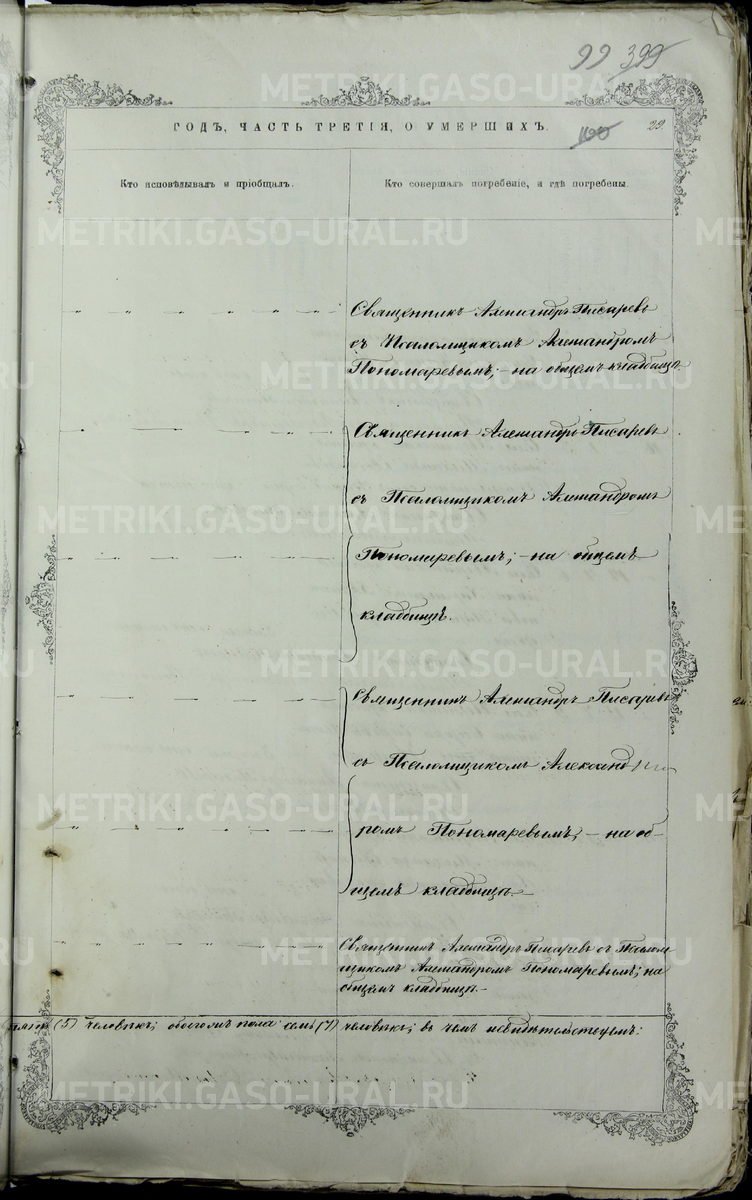 99 399
ГОДЪ, ЧАСТЬ ТРЕТІЯ, О УМЕРШИХЪ.
100 22.
Кто исповѣдывалъ и пріобщалъ.
Кто совершалъ погребеніе, и гдѣ погребены.
Священникъ Александръ Писаревъ
съ Псаломщикомъ Александромъ
Пономаревымъ; - на общемъ кладбищѣ
Священникъ Александръ Писаревъ
съ Псаломщикомъ Александромъ
Пономаревымъ; - на общемъ
кладбищѣ.
Священникъ Александръ Писаревъ
съ Псаломщикомъ Александ
ромъ Пономаревымъ; - на об-
щемъ кладбищѣ. -
Священникъ Александръ Писаревъ съ Псалом
щикомъ Александромъ Пономаревымъ; на
общемъ кладбищѣ. -
(5) человѣкъ; обоего пола семь (7) человѣкъ; въ чемъ и свидѣтельствуемъ:
METRIKI.GASO-URAL.RU